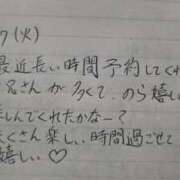 7(火)
最近長い時間予約してくれ
名さんが多くて、のら嬉し
楽しんでくれたかなー?
くさん楽しい時間過ごせて
嬉しい♡